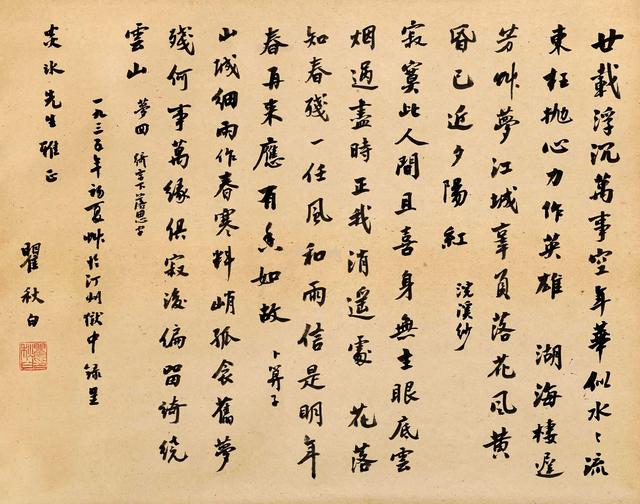 廿載浮沉萬事空年華似水〻流
東枉拋心力作英雄 湖海棲遲
芳艸夢江城辜負落花風黃
昏已近夕陽紅 浣溪紗
寂寞此人間且喜身無主眼底雲
烟過盡時正我消遙處 花落
知春殘一任風和雨信是明年
春再來應有香如故 卜算子
山城細雨作春寒料峭孤衾舊夢
殘何事萬緣俱寂後偏留綺繞
雲山 夢回
一九三五年初夏艸於汀州獄中錄呈
炎冰先生雅正
瞿秋白